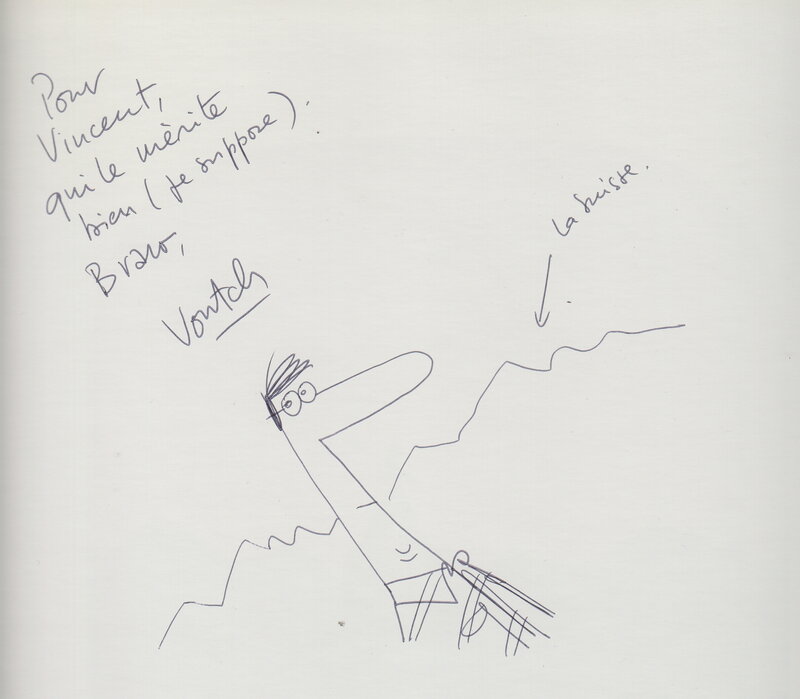 Pour
Vincent,
qui le mérite
bien (je suppose).
Bravo,
Voutch
La Suisse.